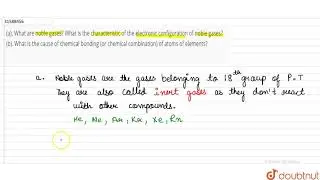 11588456
(a). What are noble gases? What is the characteristic of the electronic configuration of noble gases?
(b). What is the cause of chemical bonding (or chemical combination) of atoms of elements?
a. Noble gases are the gases belonging to 18th group of P.T
They are also called inert gases as they don't react
with other compounds.
He, Ne, Ar, Kr, Xe, Rn
doubtnut